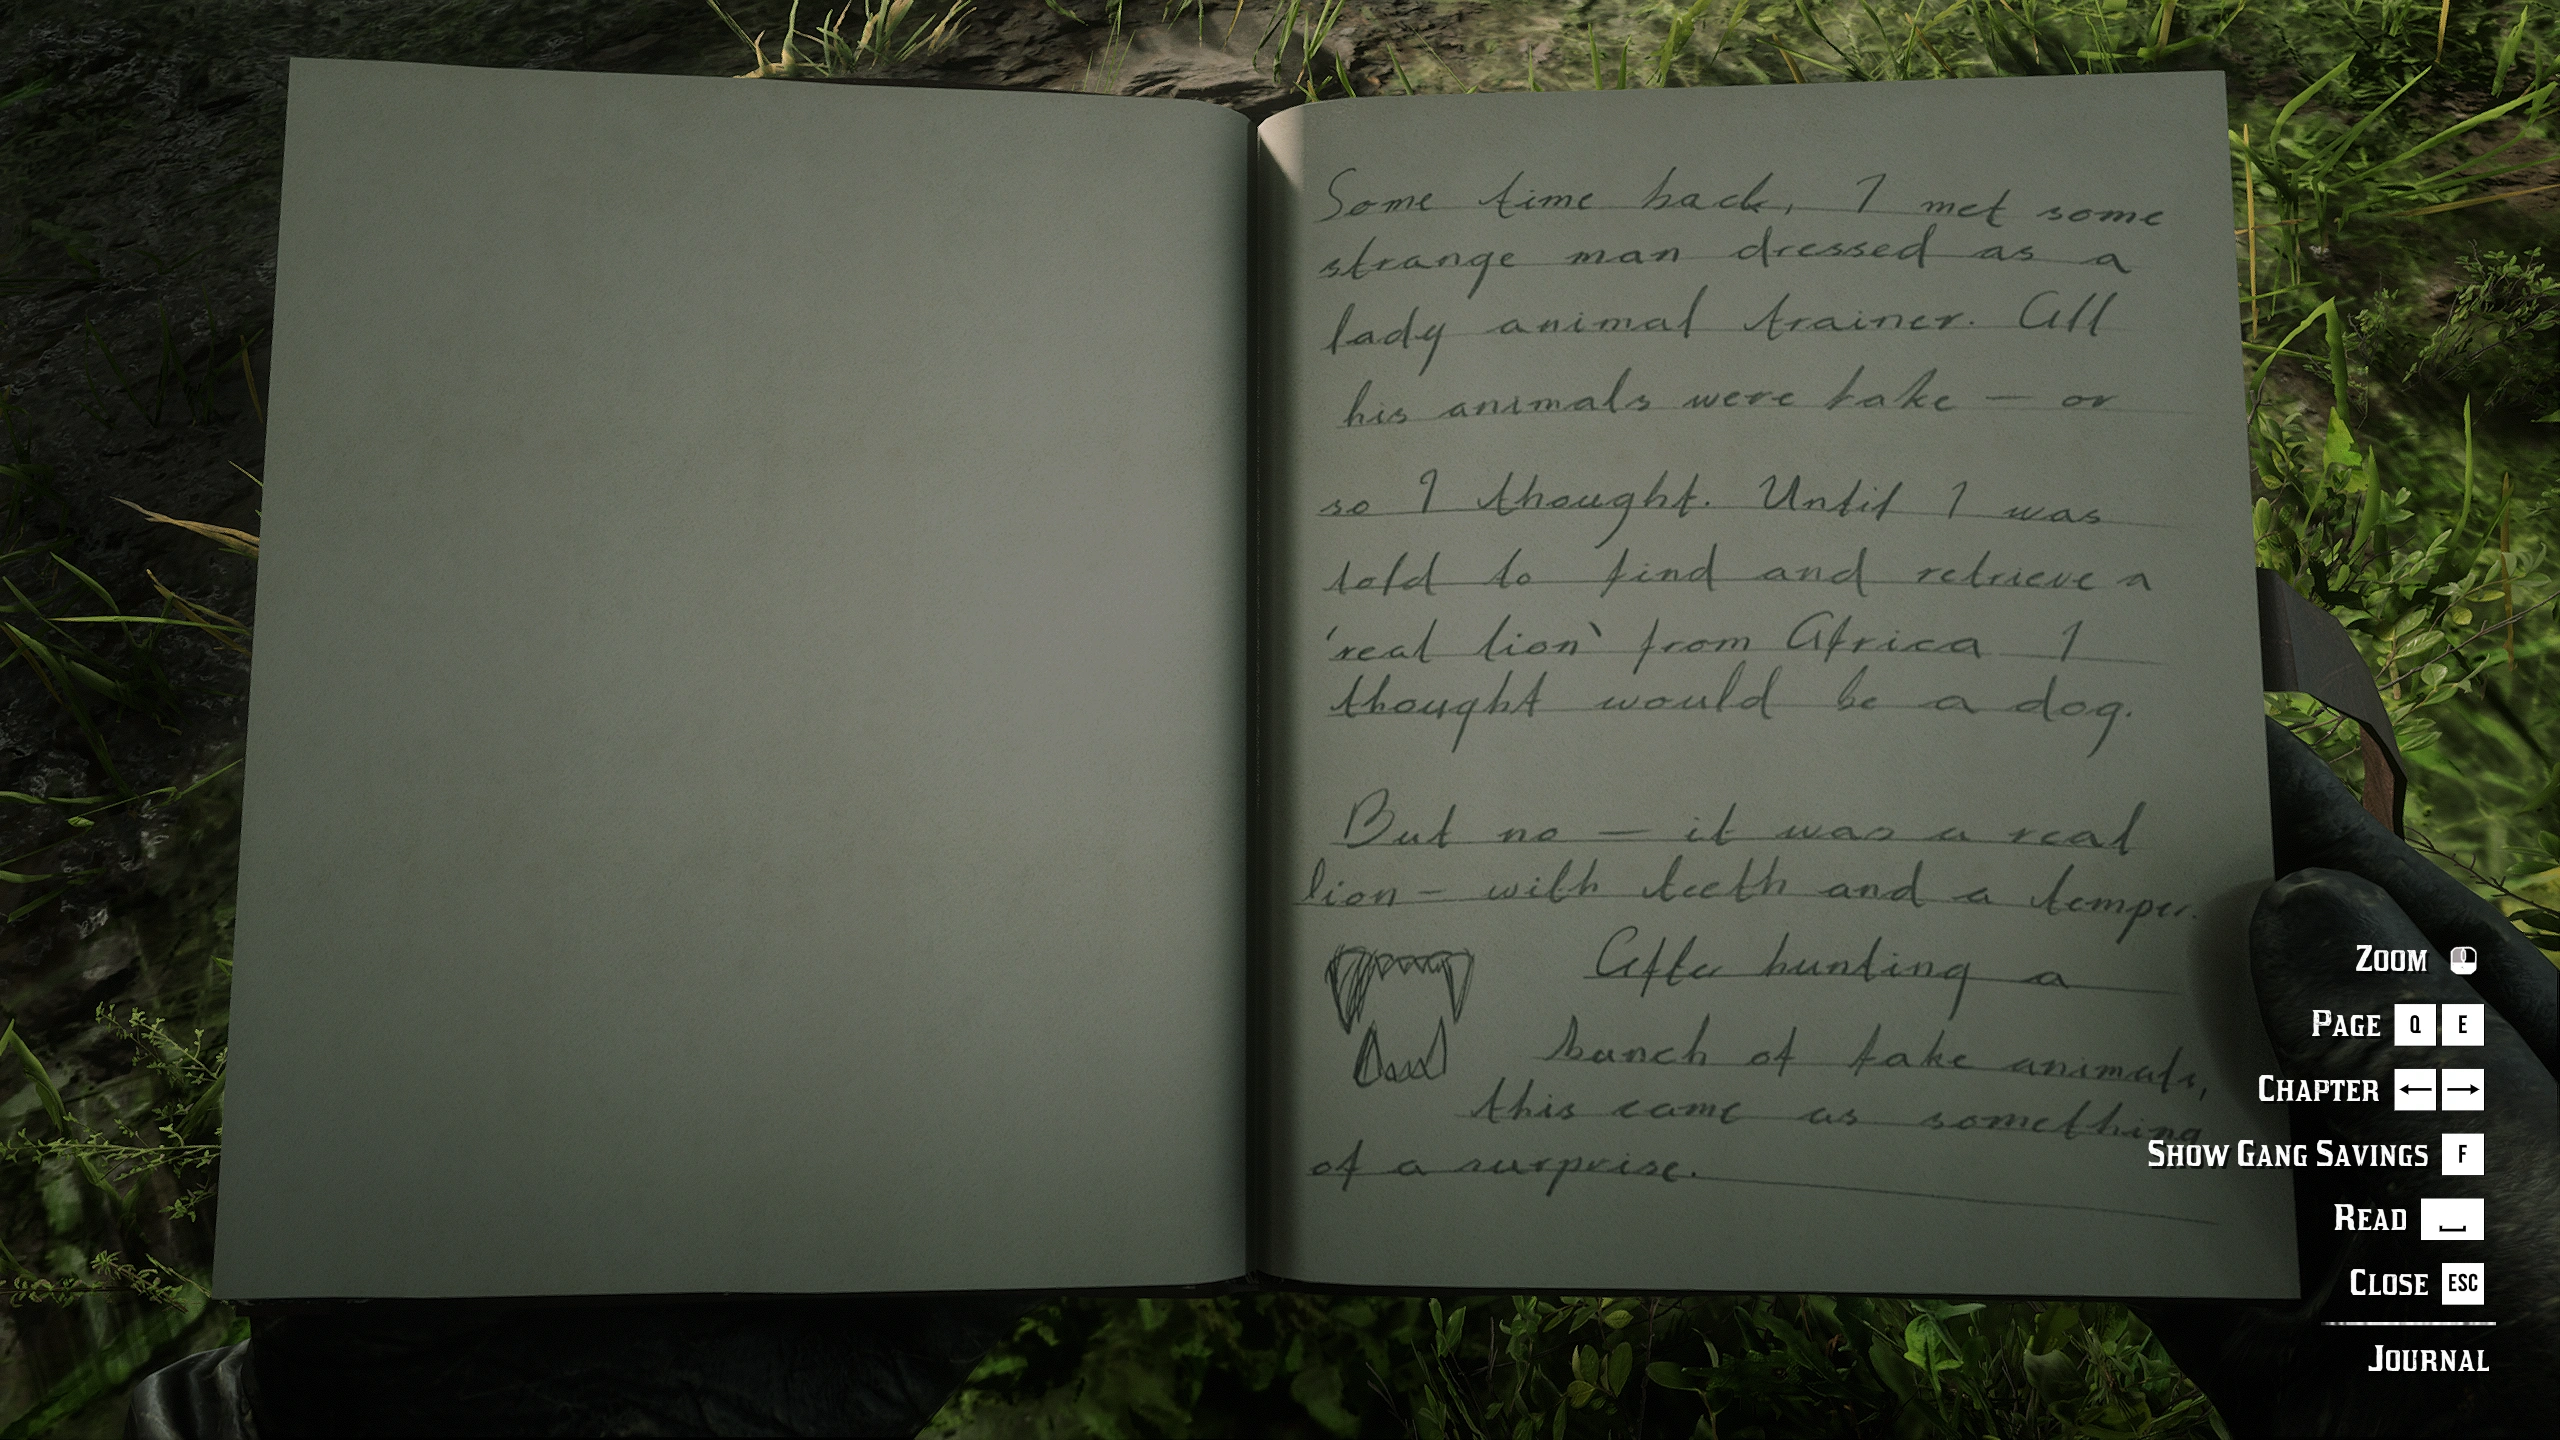 Some time back, I met some
strange man dressed as a
lady animal trainer. All
his animals were fake — or
so I thought. Until I was
told to find and retrieve a
'real lion' from Africa I
thought would be a dog.
But no — it was a real
lion — with teeth and a temper.
After hunting a
bunch of fake animals,
this came as something
of a surprise.
ZOOM
PAGE Q E
CHAPTER ← →
SHOW GANG SAVINGS F
READ
CLOSE ESC
JOURNAL